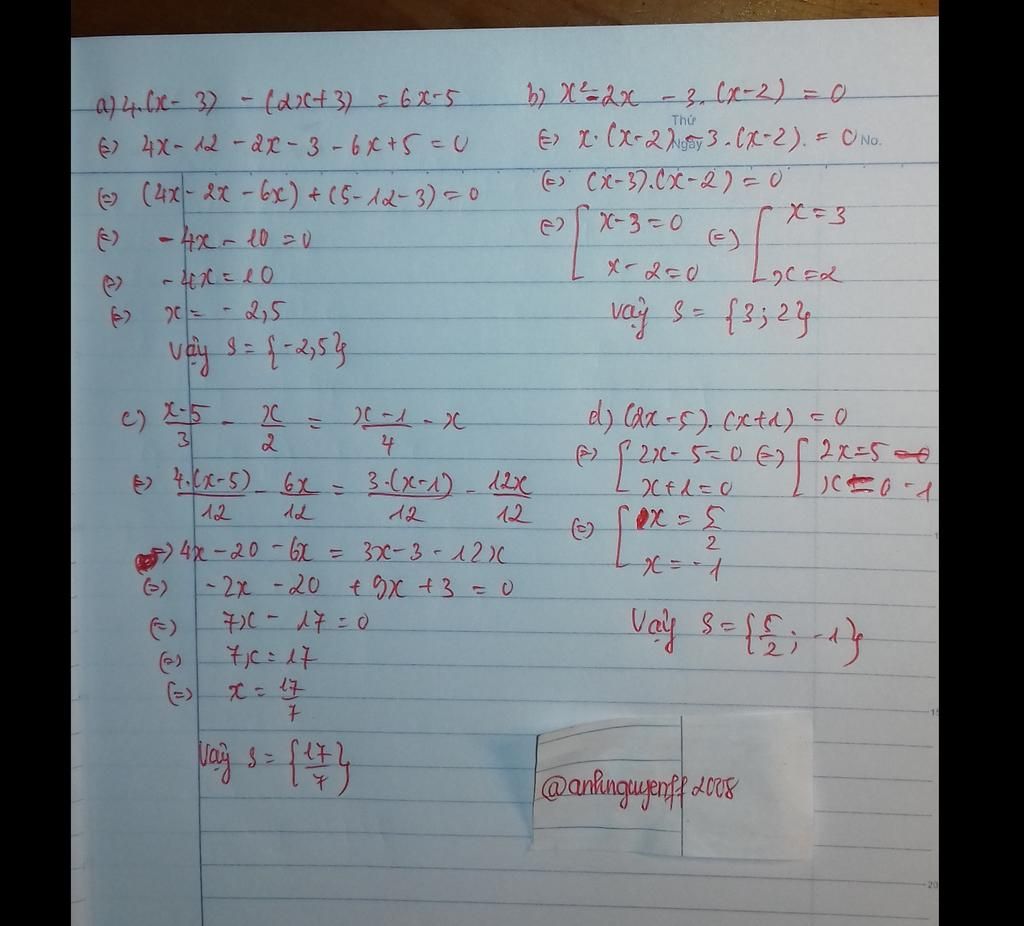 a) 4.(x - 3) - (2x+3) = 6x-5
(=) 4x - 12 - 2x - 3 - 6x + 5 = 0
(=) (4x - 2x - 6x) + (5 - 12 - 3) = 0
(=) - 4x - 10 = 0
(=) - 4x = 10
(=) x = - 2,5
Vậy S = {-2,5}
b) x² - 2x - 3.(x-2) = 0
Thứ
Ngày No.
(=) x.(x-2) - 3.(x-2) = 0
(=) (x-3).(x-2) = 0
(=) [ x-3 = 0 (=) [ x = 3
x - 2 = 0 x = 2
Vậy S = {3; 2}
c) x-5/3 - x/2 = x-1/4 - x
(=) 4.(x-5)/12 - 6x/12 = 3.(x-1)/12 - 12x/12
=) 4x - 20 - 6x = 3x - 3 - 12x
(=) - 2x - 20 + 9x + 3 = 0
(=) 7x - 17 = 0
(=) 7x = 17
(=) x = 17/7
Vậy S = {17/7}
d) (2x-5).(x+1) = 0
(=) [ 2x - 5 = 0 (=) [ 2x = 5
x + 1 = 0 x = 0 - 1
(=) [ x = 5/2
x = -1
Vậy S = {5/2; -1}
@anhnguyenff2008
15
20